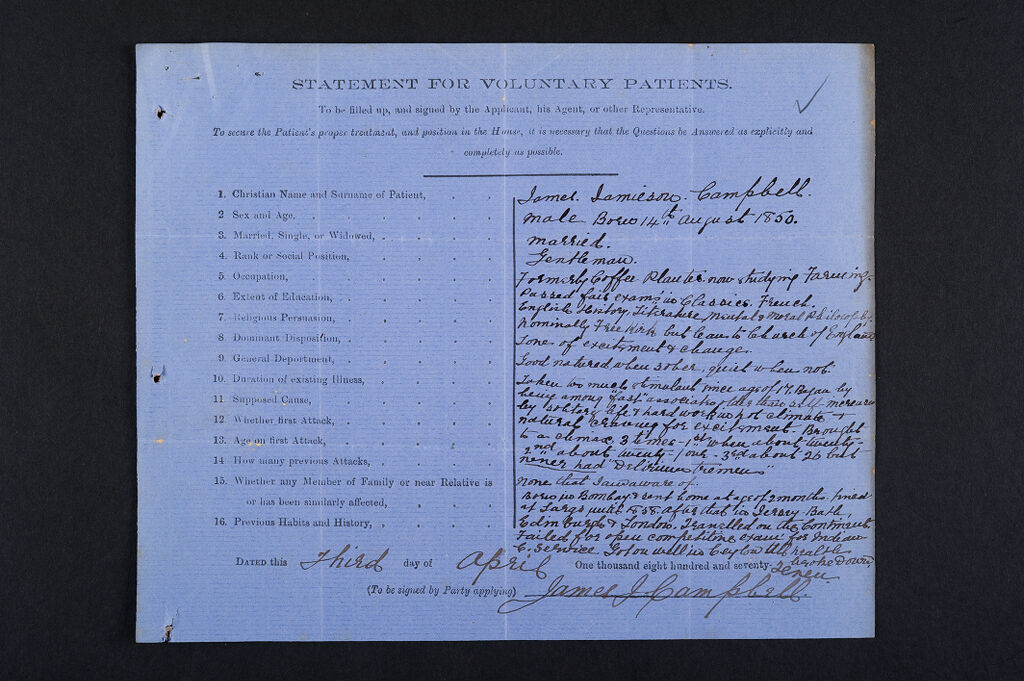 STATEMENT FOR VOLUNTARY PATIENTS.
To be filled up, and signed by the Applicant, his Agent, or other Representative.
To secure the Patient's proper treatment, and position in the House, it is necessary that the Questions be Answered as explicitly and
completely as possible.
1. Christian Name and Surname of Patient, James. Jamieson. Campbell.
2 Sex and Age. male Born 14th august 1850.
3. Married, Single, or Widowed, married.
4. Rank or Social Position, Gentleman.
5. Occupation, Formerly Coffee Planter now studying Farming-
6. Extent of Education, Passed fair exams in Classics. French.
English History, Literature, Mental & Moral Philosophy.
7. Religious Persuasion, Nominally Free Kirk but lean to Church of England
8. Dominant Disposition, Love of excitement & change.
9. General Deportment, Good natured when sober, quiet when not.
10. Duration of existing Illness, Taken too much stimulant since age of 17. Began by
11 Supposed Cause, being among "fast" associates this self increased
12. Whether first Attack, by solitary life & hard work in hot climate &
natural craving for excitement. Brought
13. Age on first Attack, to a climax 3 times - 1st when about twenty-
2nd about twenty-one - 3rd about 26 but
14 How many previous Attacks, never had "Delirium Tremens"
15. Whether any Member of Family or near Relative is None that I am aware of.
or has been similarly affected, Born in Bombay & sent home at age of 2 months. lived
at Largs until 1858. After that in Jersey. Bath,
16. Previous Habits and History, Edinburgh & London. Travelled on the Continent.
Failed for open competitive exam for Indian
C. Service Got on well in Ceylon till health
broke down
DATED this Third day of April One thousand eight hundred and seventy-seven
(To be signed by Party applying) James J Campbell.